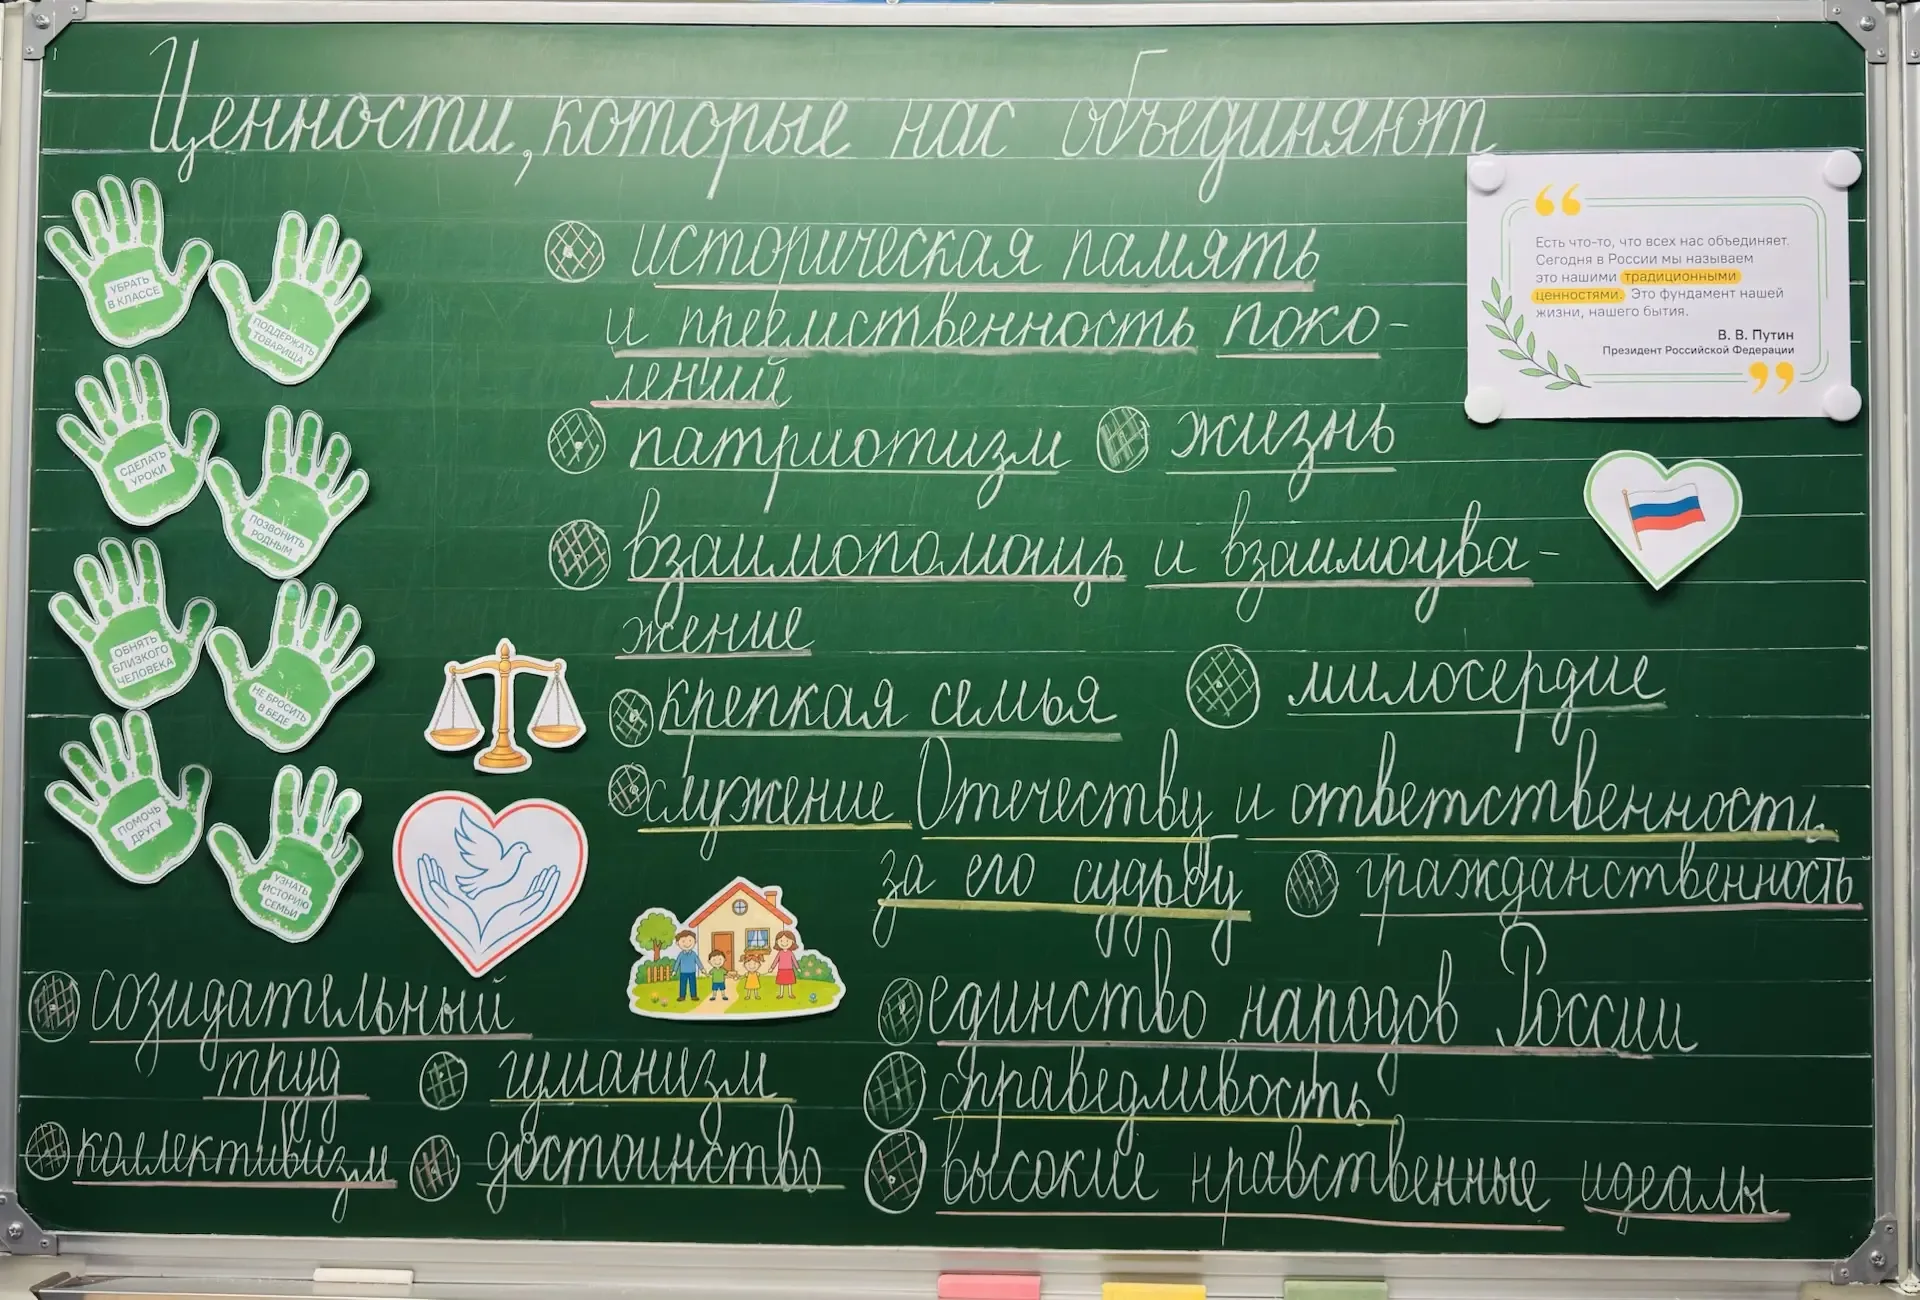 Ценности, которые нас объединяют
Есть что-то, что всех нас объединяет.
Сегодня в России мы называем
это нашими традиционными
ценностями. Это фундамент нашей
жизни, нашего бытия.
В. В. Путин
Президент Российской Федерации
УБРАТЬ
В КЛАССЕ
ПОДДЕРЖАТЬ
ТОВАРИЩА
СДЕЛАТЬ
УРОКИ
ПОЗВОНИТЬ
РОДНЫМ
ОБНЯТЬ
БЛИЗКОГО
ЧЕЛОВЕКА
НЕ БРОСИТЬ
В БЕДЕ
ПОМОЧЬ
ДРУГУ
УЗНАТЬ
ИСТОРИЮ
СЕМЬИ
историческая память
и преемственность поко-
лений
патриотизм жизнь
взаимопомощь и взаимоува-
жение
крепкая семья милосердие
служение Отечеству и ответственность
за его судьбу гражданственность
созидательный
труд
единство народов России
гуманизм справедливость
коллективизм достоинство высокие нравственные идеалы